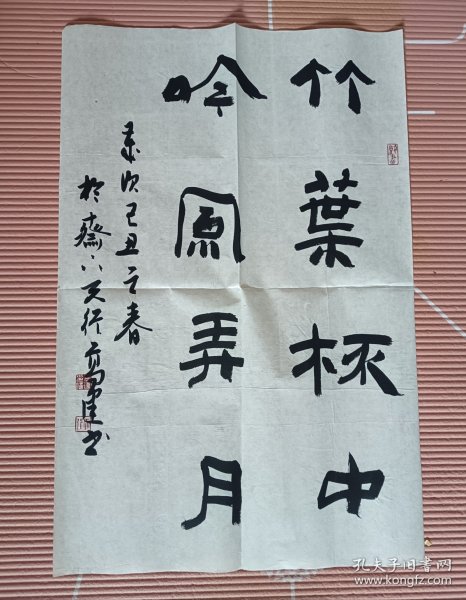 竹葉杯中
吟風弄月
歲次己丑之春
於齋
書
孔夫子旧书网
www.kongfz.com